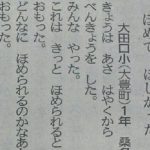 ほめて ほしかった
大田口小(大豊町)1年 桑
きょうは あさ はやくから
べんきょうを した。
みんな やった。
これは きっと ほめられると
おもった。
どんなに ほめられるのかなあ
おもった。